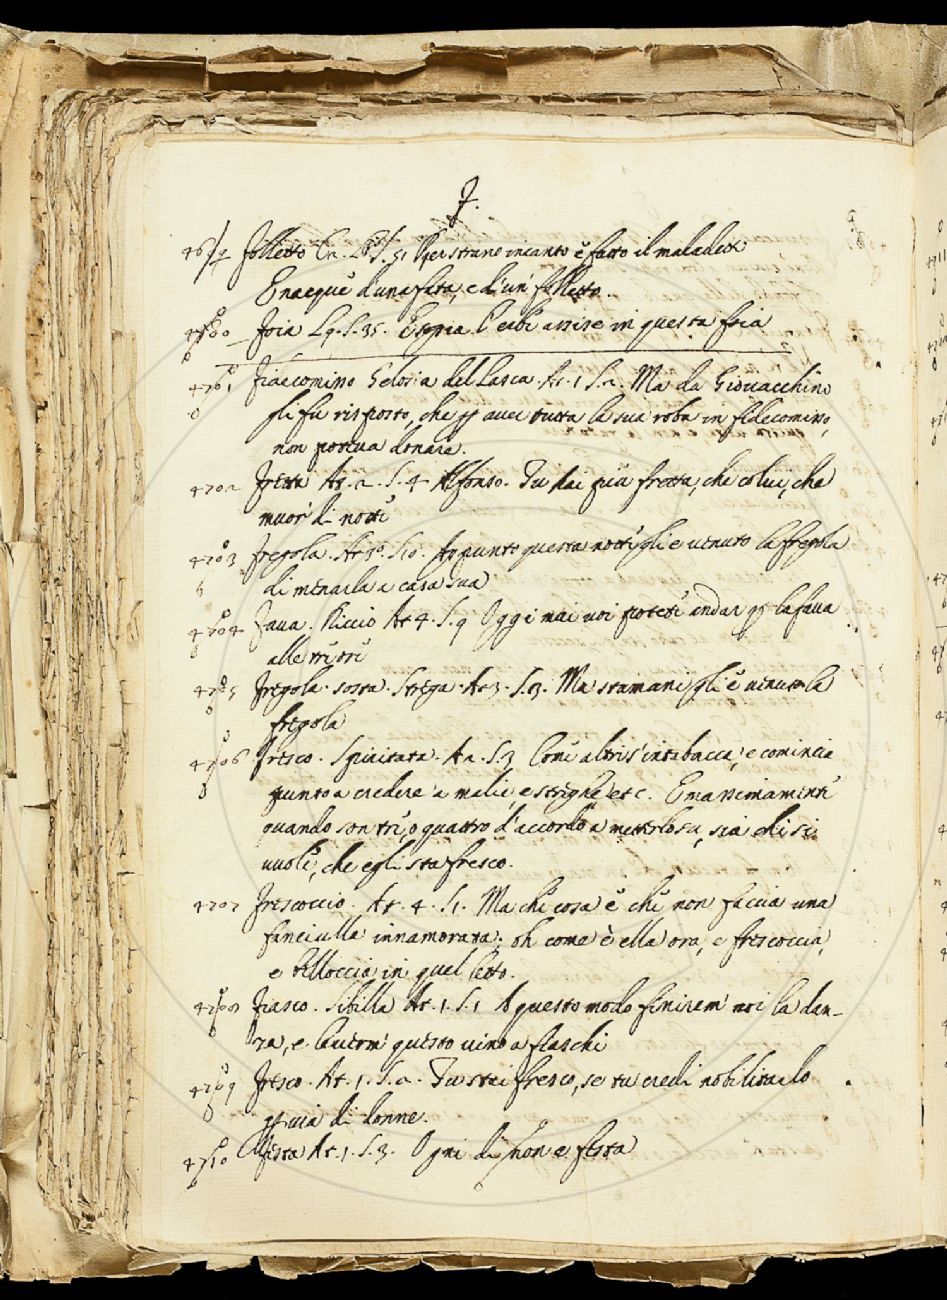 F.
Folletto Ca. St. 51 Per strano incanto è fatto il maladett
E nacque d'una fata, e d'un folletto.
4700 Foia Lq. S. 35. Eb'ebbe assise in questa foia
4701 Fidecomino Gelosia del Lasca At. 1 S. 2. Ma da Giovacchino
gli fu risposto, che p aver tutta la sua roba in fidecomino,
non poteva donare.
4702 Fretta At. 2. S. 4 Alfonso. Tu hai più fretta, che colui, che
muor di notte
4703 Fregola. At. 3. S. 10. Appunto questa notte gli è venuto la fregola
di menarla a casa sua
4704 Fava. Riccio At. 4. S. 9 Oggi mai voi potete andar p la fava
alle tre ore
4705 Fregola. sosta. Strega. At. 3. S. 3. Ma stamani gli è venuto la
fregola
4706 Fresco. Spiritata. At. S. 3 Com'altri s'intabacca, e comincia
punto a credere a malie, e streghe etc. E massimamente
quando son tre, o quattro d'accordo a metterlo su, sia chi si
vuole, che egli sta fresco.
4707 Frescoccio. At. 4. S. 1. Ma che cosa è che non faccia una
fanciulla innamorata; oh come è ella ora, e frescoccia,
e belloccia in quel letto.
4708 Fiasco. Sibilla At. 1. S. 1 A questo modo finirem noi la dan-
za, e berem questo vino a fiaschi
4709 Fresco. At. 1. S. 2. Tu stai fresco, se tu credi nobilitarlo
p via di donne.
4710 Festa At. 1. S. 3. Ogni dì non è festa